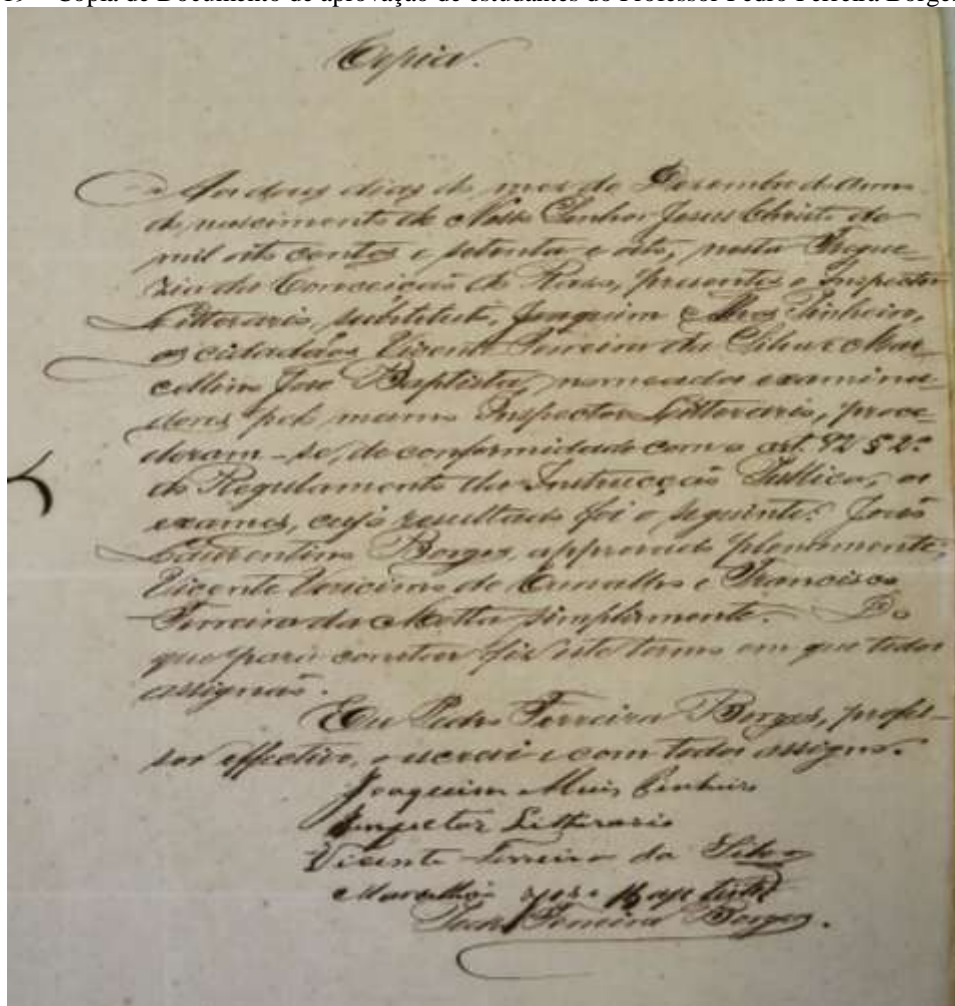 19 – Cópia de Documento de aprovação de estudantes do Professor Pedro Ferreira Borges
Copia.
Aos dous dias do mez de Dezembro do anno
do nascimento de Nosso Senhor Jesus Christo de
mil oito centos e setenta e oito, nesta Fregue-
zia da Conceição do Raso, presentes o Inspector
Litterario, substituto, Joaquim Pinheiro,
os cidadãos Vicente Ferreira da Silva e Mar-
cellino José Baptista, nomeados examina-
dores pelo mesmo Inspector Litterario, proce-
deram-se, de conformidade com o art. 92 § 2º
do Regulamento da Instrucção Publica, os
exames, cujo resultado foi o seguinte: João
Laurentino Borges, approvado plenamente;
Vicente de Carvalho e Francisco
Ferreira da Motta simplesmente. Do
que para constar fiz este termo em que todos
assignão.
Eu Pedro Ferreira Borges, profes-
sor effectivo, o escrevi e com todos assigno.
Joaquim Pinheiro
Inspector Litterario
Vicente Ferreira da Silva
Marcellino José Baptista
Pedro Ferreira Borges.